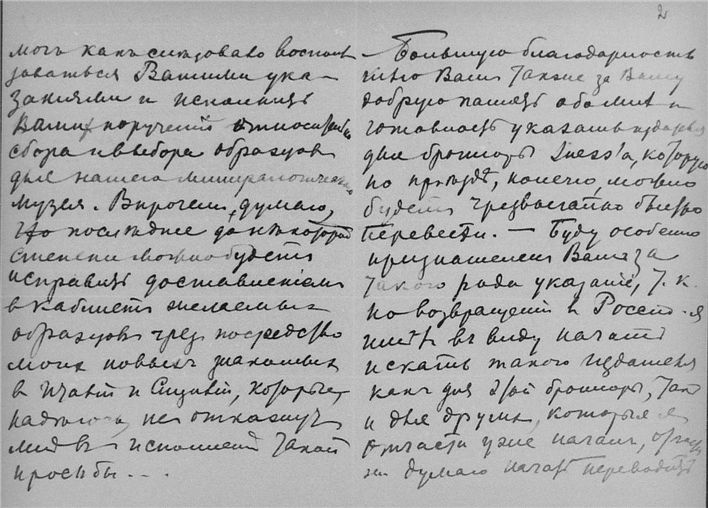 2
могъ какъ следовало восполь
зоваться Вашими ука-
заніями и исполнить
Вами порученій относительно
сбора и выбора образцовъ
для нашего минералогическаго
музея. Впрочемъ, думаю,
что последнее до некоторой
степени можно будетъ
исправить доставленіемъ
в кабинетъ желаемыхъ
образцовъ чрез посредство
моихъ новыхъ знакомыхъ
в Италіи и Сициліи, которые,
надеюсь, не откажутъ
мне в исполненіи такой
просьбы - - .
— Большую благодарность
чтю Вамъ также за Вашу
добрую память обо мне и
готовность указать издателя
для брошюры Suess'а, которую
по правде, конечно, можно
будетъ чрезвычайно быстро
перевести. — Буду особенно
признателенъ Вамъ за
такого рода указаніе, т. к.
по возвращеніи в Россію я
имею в виду начать
искать такого издателя
какъ для этой брошюры, такъ
и для другихъ, которыя я
отчасти уже началъ, отчасти
же думаю начать переводить